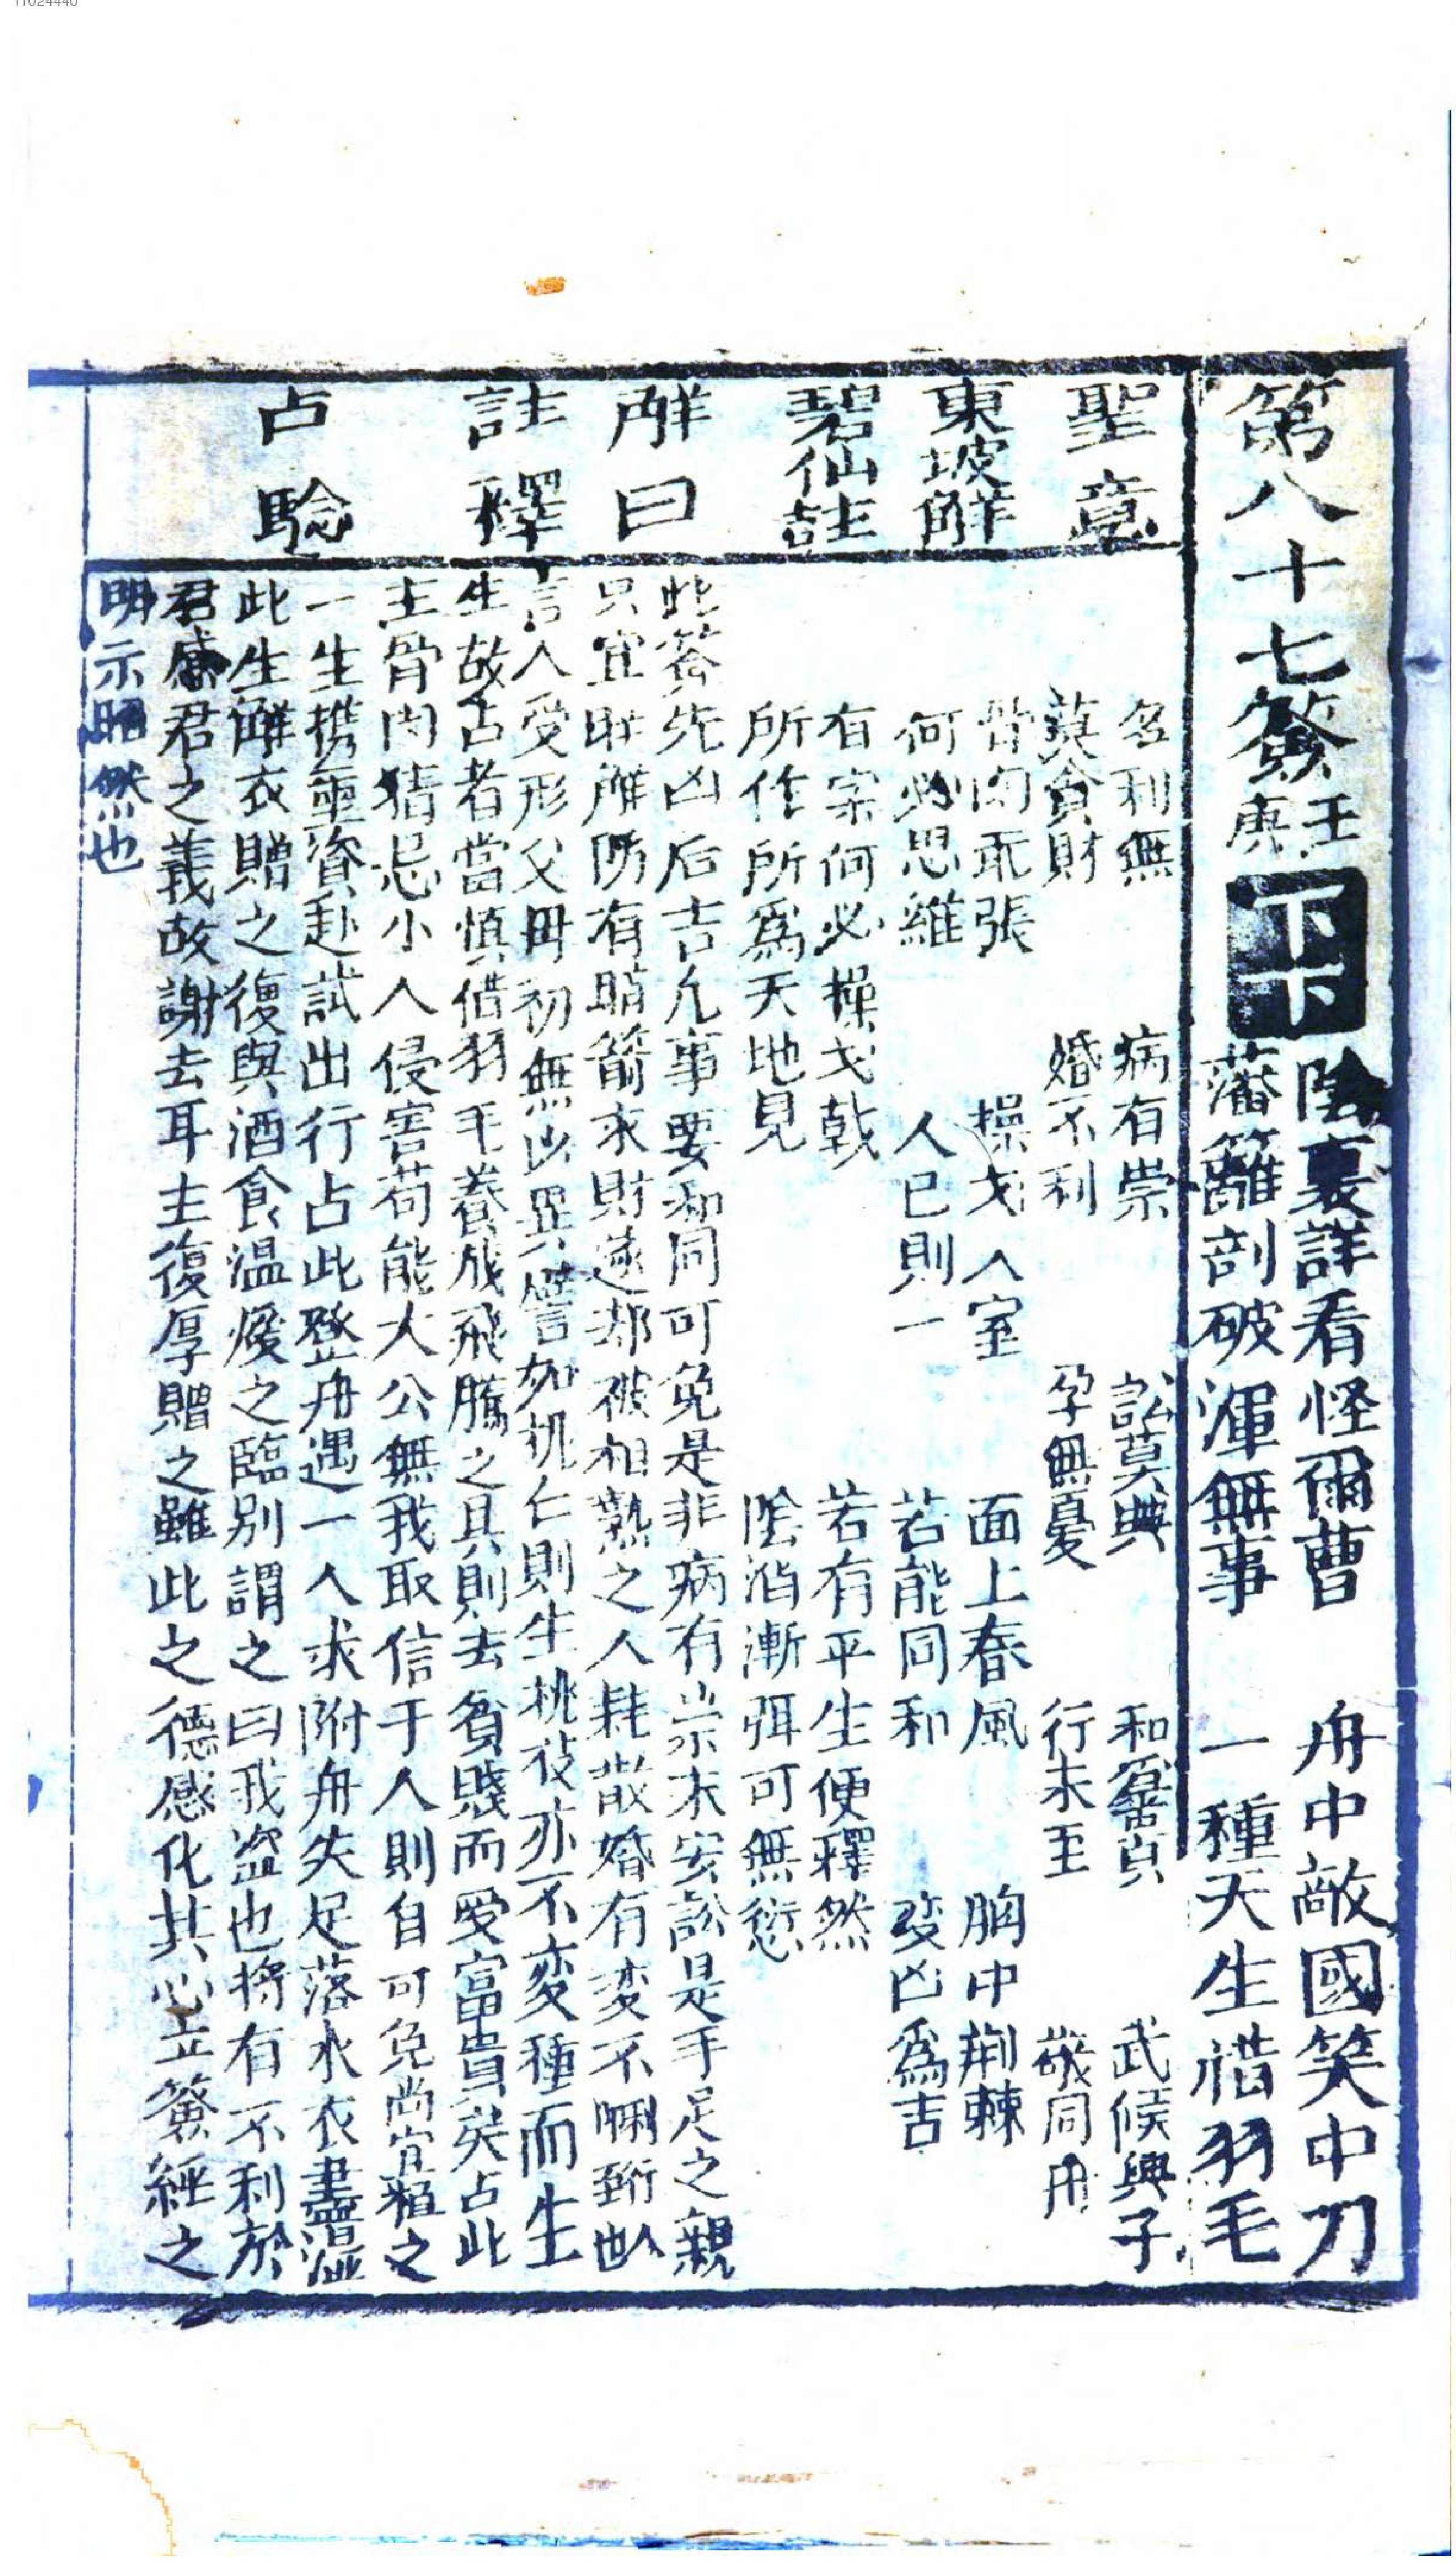 11024440
第八十七簽 壬庚 下下
陰裏詳看怪爾曹 舟中敵國笑中刀
藩籬剖破渾無事 一種天生惜羽毛
聖意
名利無 病有祟 訟莫興 和為貞 武候興子
莫貪財 婚不利 孕無憂 行未至 敵同舟
東坡解
骨肉乖張 操戈入室 面上春風 胸中荆棘
何必思維 人己則一 若能同和 變凶為吉
碧仙註
有家何必操戈戟 若有平生便釋然
所作所為天地見 陰消漸弭可無愆
解曰
此簽先凶后吉凡事要和同可免是非病有祟未安訟是手足之親
只宜联解防有暗箭求財遂却被相熟之人耗散婚有变不
註釋
言人受形父母初無以異譬如机仁則生桃杏亦不变種而生
生故占者當慎借羽毛養成飛騰之具則去貧賤而爱富貴矣占此
主骨肉猜忌小人侵害苟能大公無我取信于人則自可免尚宜植之
占驗
一生携重資赴試出行占此登舟遇一人求附舟失足落水衣盡濕
此生解衣贈之復與酒食温煖之臨别謂之曰我盗也将有不利於
君感君之義故謝去耳主復厚贈之雖此之德感化其心亦簽經之
明示昭然也